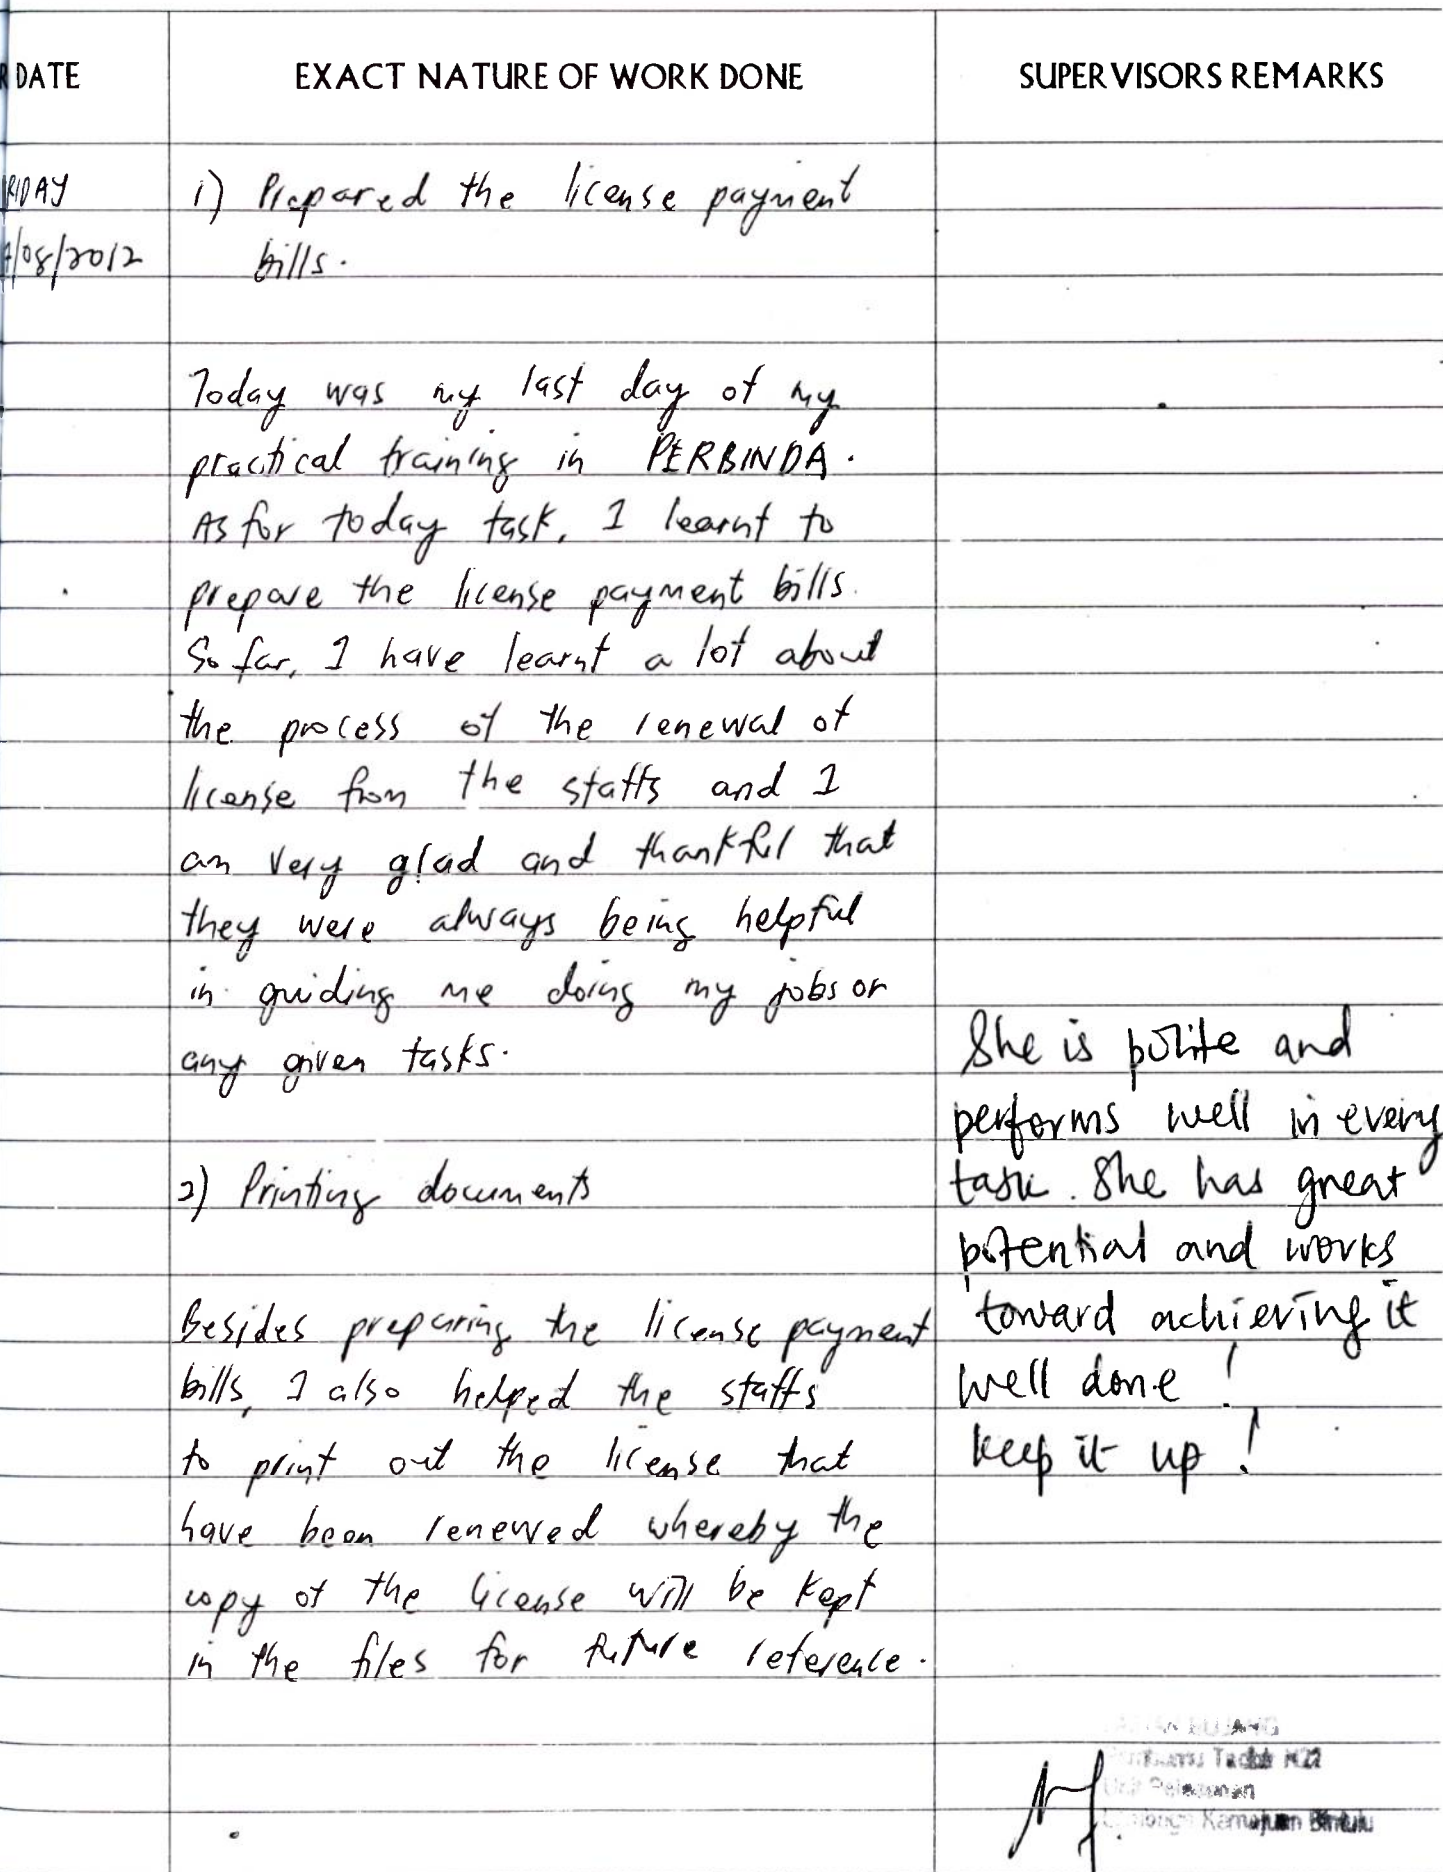 DATE
EXACT NATURE OF WORK DONE
SUPERVISORS REMARKS
RIDAY
/08/2012
1) Prepared the license payment
bills.
Today was my last day of my
practical training in PERBINDA.
As for today task, I learnt to
prepare the license payment bills.
So far, I have learnt a lot about
the process of the renewal of
license from the staffs and I
am very glad and thankful that
they were always being helpful
in guiding me doing my jobs or
any given tasks.
2) Printing documents
Besides preparing the license payment
bills, I also helped the staffs
to print out the license that
have been renewed whereby the
copy of the license will be kept
in the files for future reference.
She is polite and
performs well in every
task. She has great
potential and works
toward achieving it
well done!
keep it up!
Tadbir
Unit
Kemajuan Bintulu